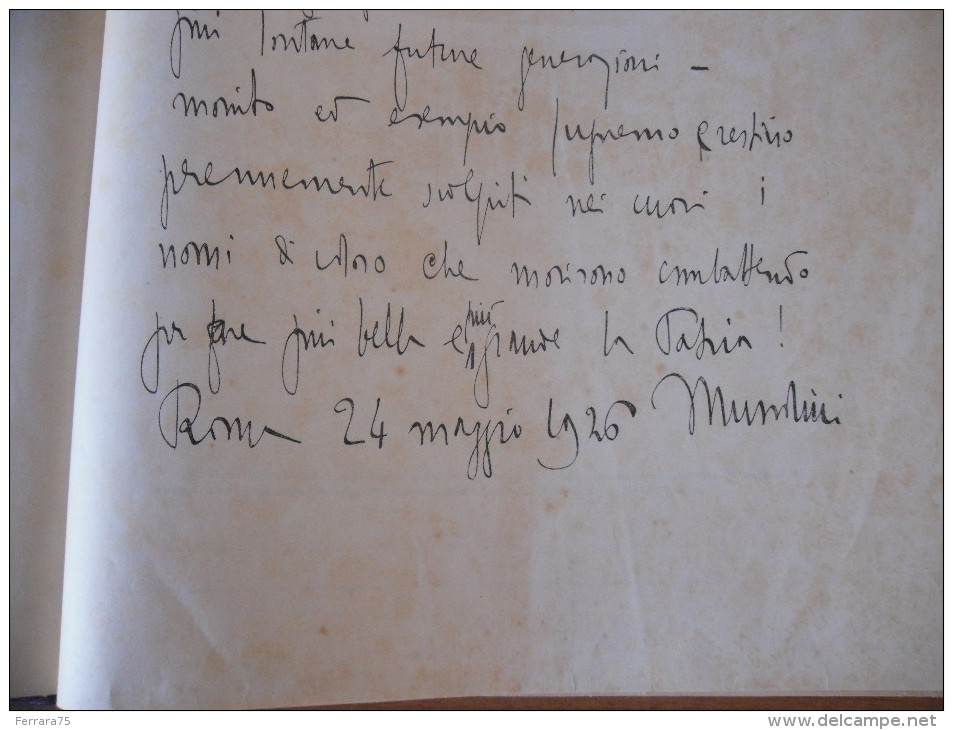 più lontane future generazioni –
monito ed esempio supremo e restino
perennemente scolpiti nei cuori i
nomi di coloro che morirono combattendo
per fare più bella e più grande la Patria!
Roma 24 maggio 1926 Mussolini
Ferrara75
www.delcampe.net